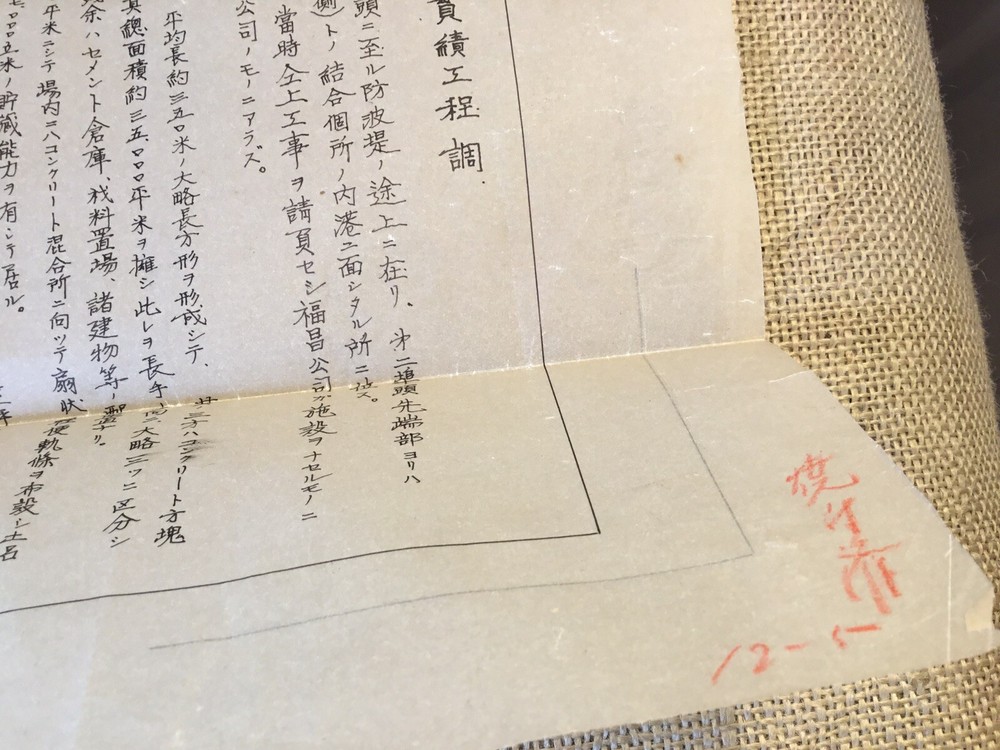 績工程調
頭ニ至ル防波堤ノ途上ニ在リ、第二埠頭先端部ヨリハ
側)トノ結合個所ノ内港ニ面シタル所ニ
当時仝上工事ヲ請負セシ福昌公司ガ施設ヲナセルモノニ
公司ノモノニアラズ。
平均長約三五〇米ノ大略長方形ヲ形成シテ、其ノ三方ハコンクリート方塊
其總面積約三五〇〇〇平米ヲ擁シ此レヲ長手ニ大略三ツニ区分シ
余ハセメント倉庫、材料置場、諸建物等ノ
平米ニシテ場内ニハコンクリート混合所ニ向ッテ扇状ニ軌條ヲ布設シ土
五米ノ貯蔵能力ヲ有シテ居ル。
焼付済
12-5